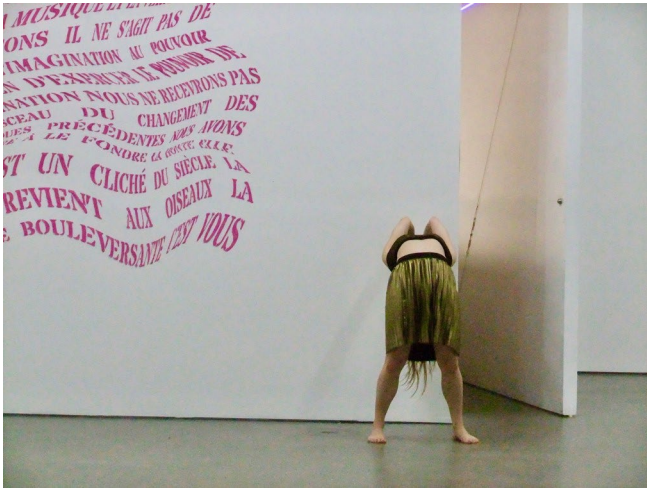 MUSIQUE ET
ONS IL NE S'AGIT PAS DE
IMAGINATION AU POUVOIR
D'EXERCER LE POUVOIR DE
NATION NOUS NE RECEVRONS PAS
SCEAU DU CHANGEMENT DES
QUES PRÉCÉDENTES NOUS AVONS
À LE FONDRE ELLE.
ST UN CLICHÉ DU SIÈCLE LA
REVIENT AUX OISEAUX LA
E BOULEVERSANTE C'EST VOUS